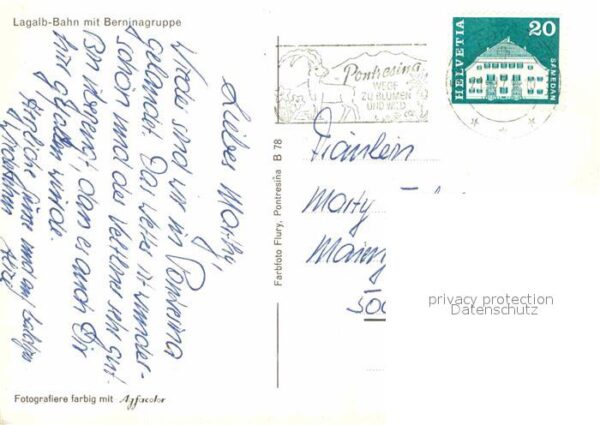 Lagalb-Bahn mit Berninagruppe
Liebes Marty,
sind wir in Pontresina
gelandet. Das Wetter ist wunder-
schön und das Vettenn sehr gut.
Bin überzeugt, dass es auch Dir
hier gefallen würde.
Herzliche Grüsse und auf baldiges
Fotografiere farbig mit Agfacolor
Farbfoto Flury, Pontresina B 78
Pontresina
WEGE
ZU BLUMEN
UND WILD
HELVETIA
20
SAMEDAN
Fräulein
Marty
500
privacy protection
Datenschutz